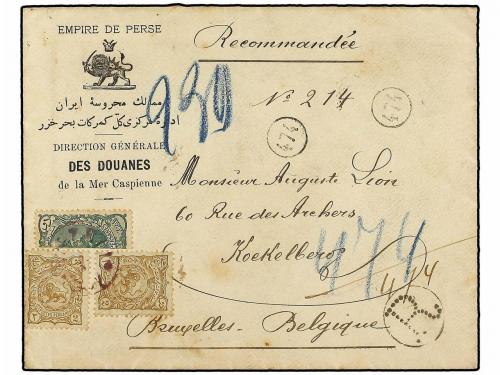 EMPIRE DE PERSE
Recommandée
ممالك محروسهٔ ایران
ادارهٔ مرکزی کل کمرکات بحر خزر
DIRECTION GÉNÉRALE
DES DOUANES
de la Mer Caspienne
239
Nº 214
474
474
Monsieur Auguste Lion
60 Rue des Archers
Koekelberg
474
474
Bruxelles - Belgique
5